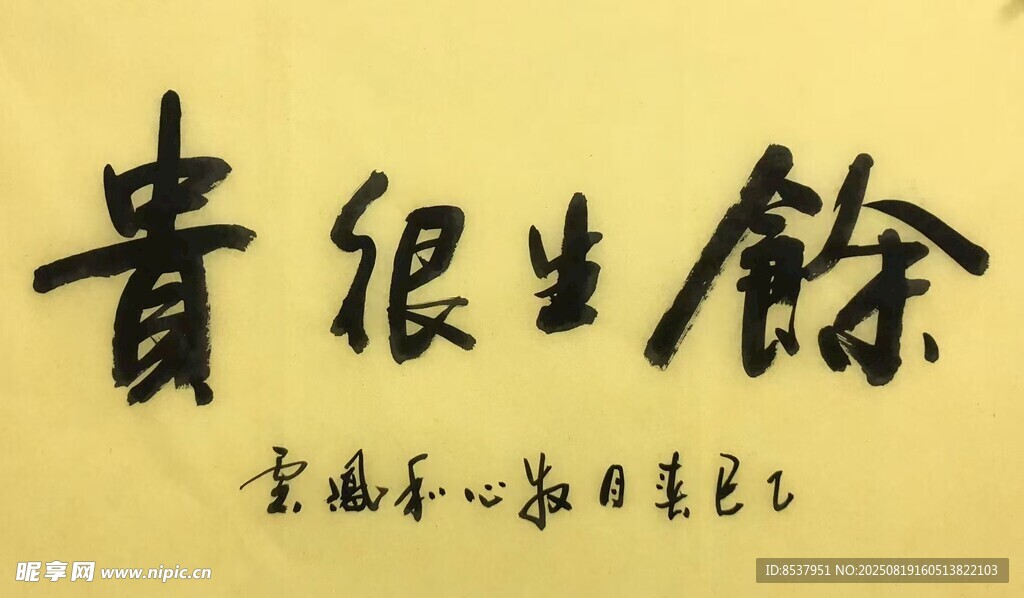 餘生很貴
乙巳月牧心和鳳雲
昵享网 www.nipic.cn
ID:8537951 NO:20250819160513822103